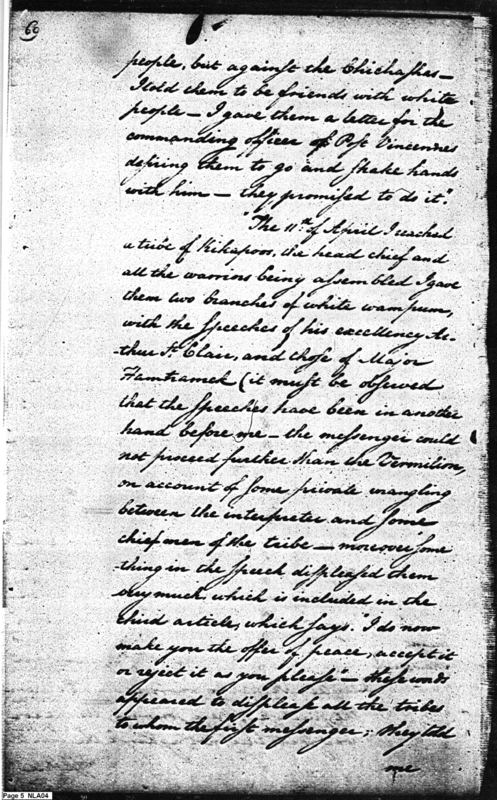 60
people, but against the Chichashas—
I told them to be friends with white
people— I gave them a letter for the
commanding officer of Post Vincennes
desiring them to go and shake hands
with him — they promised to do it".
"The 11th. of April I reached
a tribe of Kikapoos, the head chief and
all the warriors being assembled I gave
them two branches of white wampum,
with the speeches of his excellency Ar-
thur St. Clair, and those of Major
Hamtramck (it must be observed
that the speeches have been in another
hand before me — the messenger could
not proceed further than the Vermilion,
on account of some private wrangling
between the interpreter and some
chief men of the tribe — moreover some
thing in the speech displeased them
very much which is included in the
third article, which says. "I do now
make you the offer of peace, accept it
or reject it as you please" — these words
appeared to displease all the tribes
to whom the first messenger; they told
me
Page 5 NLA04